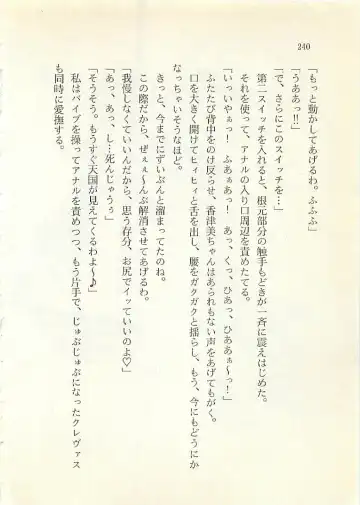 240
「もっと動かしてあげるわ。ふふふ」
「うああっ!!」
「で、さらにこのスイッチを…」
第二スイッチを入れると、根元部分の触手もどきが一斉に震えはじめた。
それを使って、アナルの入り口周辺を責めたてる。
「いっいやぁっ! ふあぁぁっ! あっ、くっ、ひあっ、ひああぁ〜っ!」
ふたたび背中をのけ反らせ、香津美ちゃんはあられもない声をあげてもがく。
口を大きく開けてヒィヒィと舌を出し、腰をガクガクと揺らし、もう、今にもどうにか
なっちゃいそうなほど。
きっと、今までにずいぶんと溜まってたのね。
この際だから、ぜぇぇ〜んぶ解消させてあげるわ。
「我慢しなくていいんだから、思う存分、お尻でイッていいのよ♡」
「あっ、あっ、し…死んじゃうぅ」
「そうそう。もうすぐ天国が見えてくるわよ〜♪」
私はバイブを操ってアナルを責めつつ、もう片手で、じゅぶじゅぶになったクレヴァス
も同時に愛撫する。